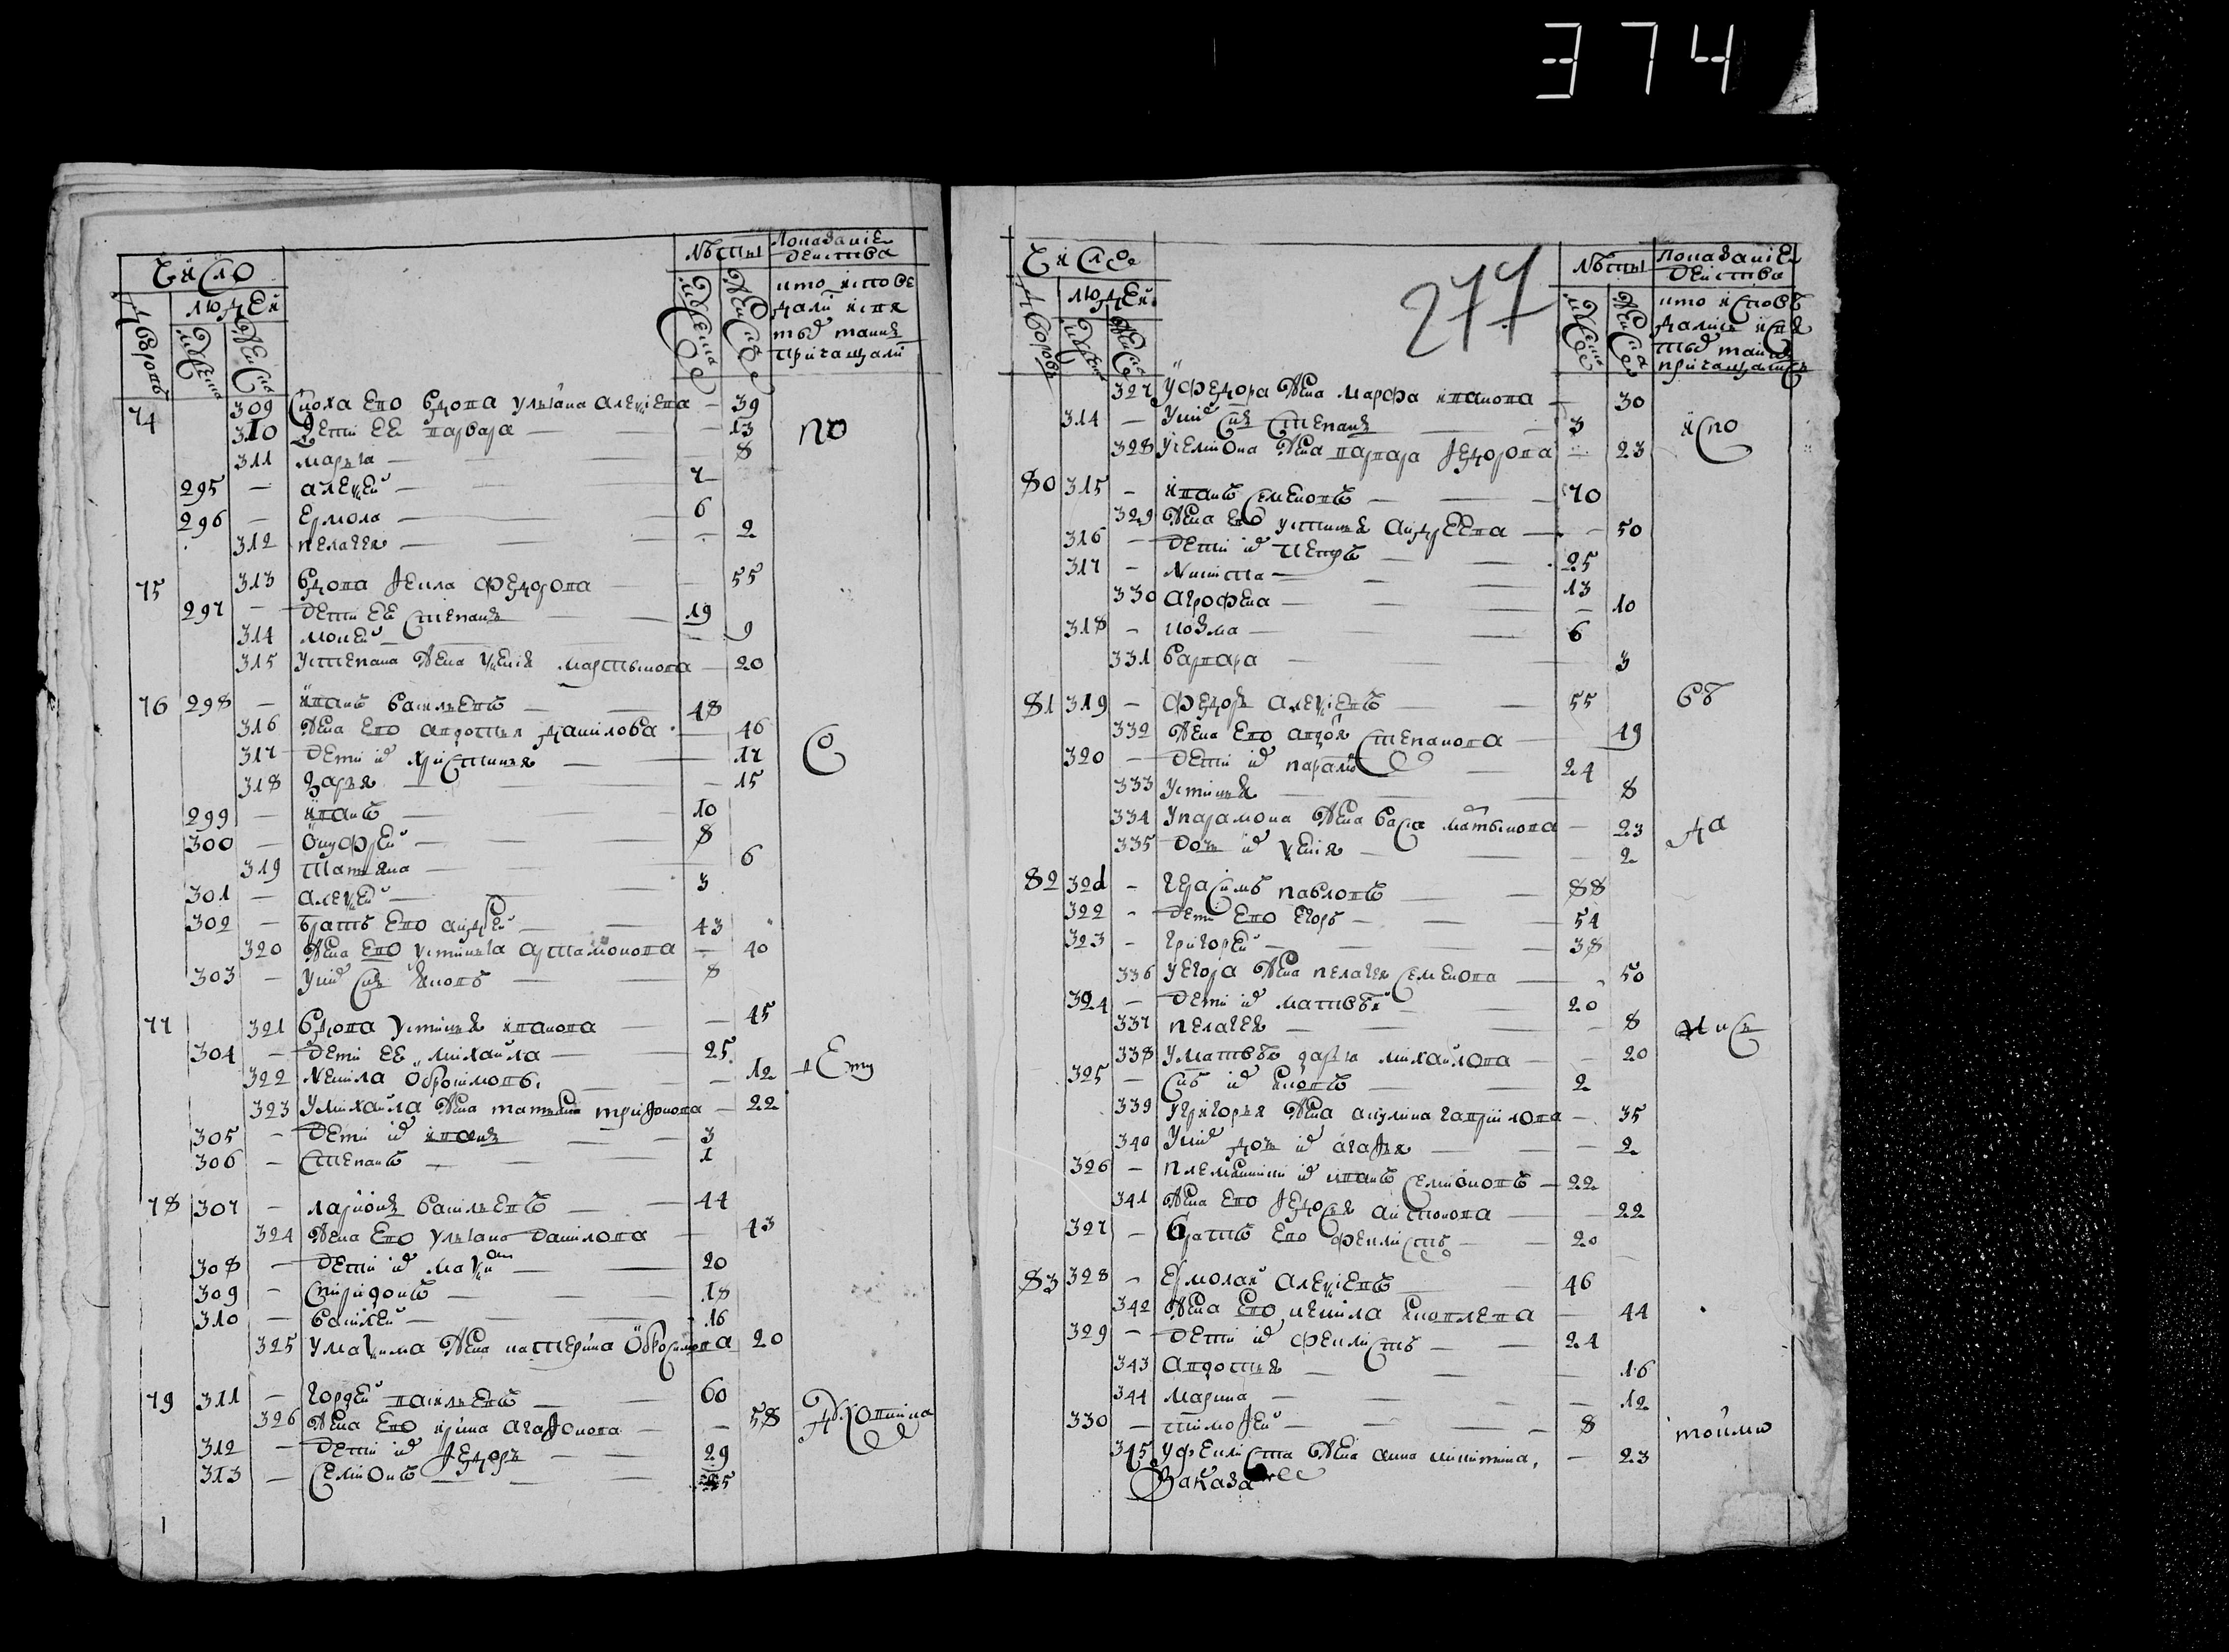 374
Число
Лѣты
Показаніе
действа
Дворовъ
людей
Мужеска
Женска
Мужеска
Женска
кто исповедали и свя
тыхъ таинъ
причащали
74 309 Сноха ево вдова Ульяна Алексіева — 39
310 Дети ее Варвара — 13
311 Марья — 8
295 — Алексей — 7
296 — Ермола — 6
312 Пелагея — 2
по
75 313 Вдова Фекла Федорова — 55
297 — Дети ее Степанъ — 19
314 — 9
315 У Степана жена Ксенія Мартынова — 20
76 298 — Иванъ Васильевъ — 48
316 Жена ево Авдотья Данилова — 46
317 Дети ихъ Христинья — 17
318 Дарья — 15
299 — Иванъ — 10
300 — Онуфрей — 8
319 Татьяна — 6
301 — Алексей — 3
302 — Братъ ево Андрей — 43
320 Жена ево Устинья Артамонова — 40
303 — У нихъ сынъ Яковъ — 8
с
77 321 Вдова Устинья Иванова — 45
304 — Дети ее Михайла — 25
322 Обросимовъ — 12
323 У Михайла жена Татьяна Трифонова — 22
305 — Дети ихъ Иванъ — 3
306 — Степанъ — 1
78 307 — Ларионъ Васильевъ — 44
324 Жена ево Ульяна Данилова — 43
308 — Дети ихъ Максим — 20
309 — Спиридонъ — 18
310 — Василей — 16
325 У Максима жена Катерина Обросимова 20
79 311 — Гордей Васильевъ — 60
326 Жена ево Ирина Агафонова — 58
312 — Дети ихъ Федоръ — 29
313 — Семионъ — 25
277
Число
Лѣты
Показаніе
действа
Дворовъ
людей
Мужеска
Женска
Мужеска
Женска
кто исповѣ
дались и свя
тыхъ таинъ
причащались
327 У Федора жена Марфа Иванова — 30
314 — У нихъ сынъ Степанъ — 3
328 У Семиона жена Варвара Федорова — 23
испо
80 315 — Иванъ Семеновъ — 70
329 Жена ево Устинья Андреева — 50
316 — Дети ихъ Петръ — 25
317 — Никита — 13
330 Агрофена — 10
318 — Козма — 6
331 Варвара — 3
81 319 — Федоръ Алексіевъ — 55
332 Жена ево Авдотья Степанова — 49
320 — Дети ихъ Парамон — 24
333 Устинья — 8
334 У Парамона жена Васса Мартынова — 23
335 Дочь ихъ Ксенія — 2
вѣ
да
82 321 — Герасимъ Павловъ — 88
322 — Дети ево Егоръ — 54
323 — Григорей — 38
336 У Егора жена Пелагея Семенова — 50
324 — Дети ихъ Матвѣй — 20
337 Пелагея — 8
338 У Матвѣя Дарья Михайлова — 20
325 — Сынъ ихъ Яковъ — 2
339 У Григорья жена Акулина Гаврилова — 35
340 У нихъ дочь ихъ Агафья — 2
326 — Племянники ихъ Иванъ Семионовъ — 22
341 Жена ево Федосья Антонова — 22
327 — Братъ ево Феклистъ — 20
83 328 — Ермолай Алексіевъ — 46
342 Жена ево Яковлева — 44
329 — Дети ихъ Феклистъ — 24
343 Авдотья — 16
344 Марина — 12
330 — Тимофей — 8
345 У Феклиста жена Анна Никитина, — 23
токмо